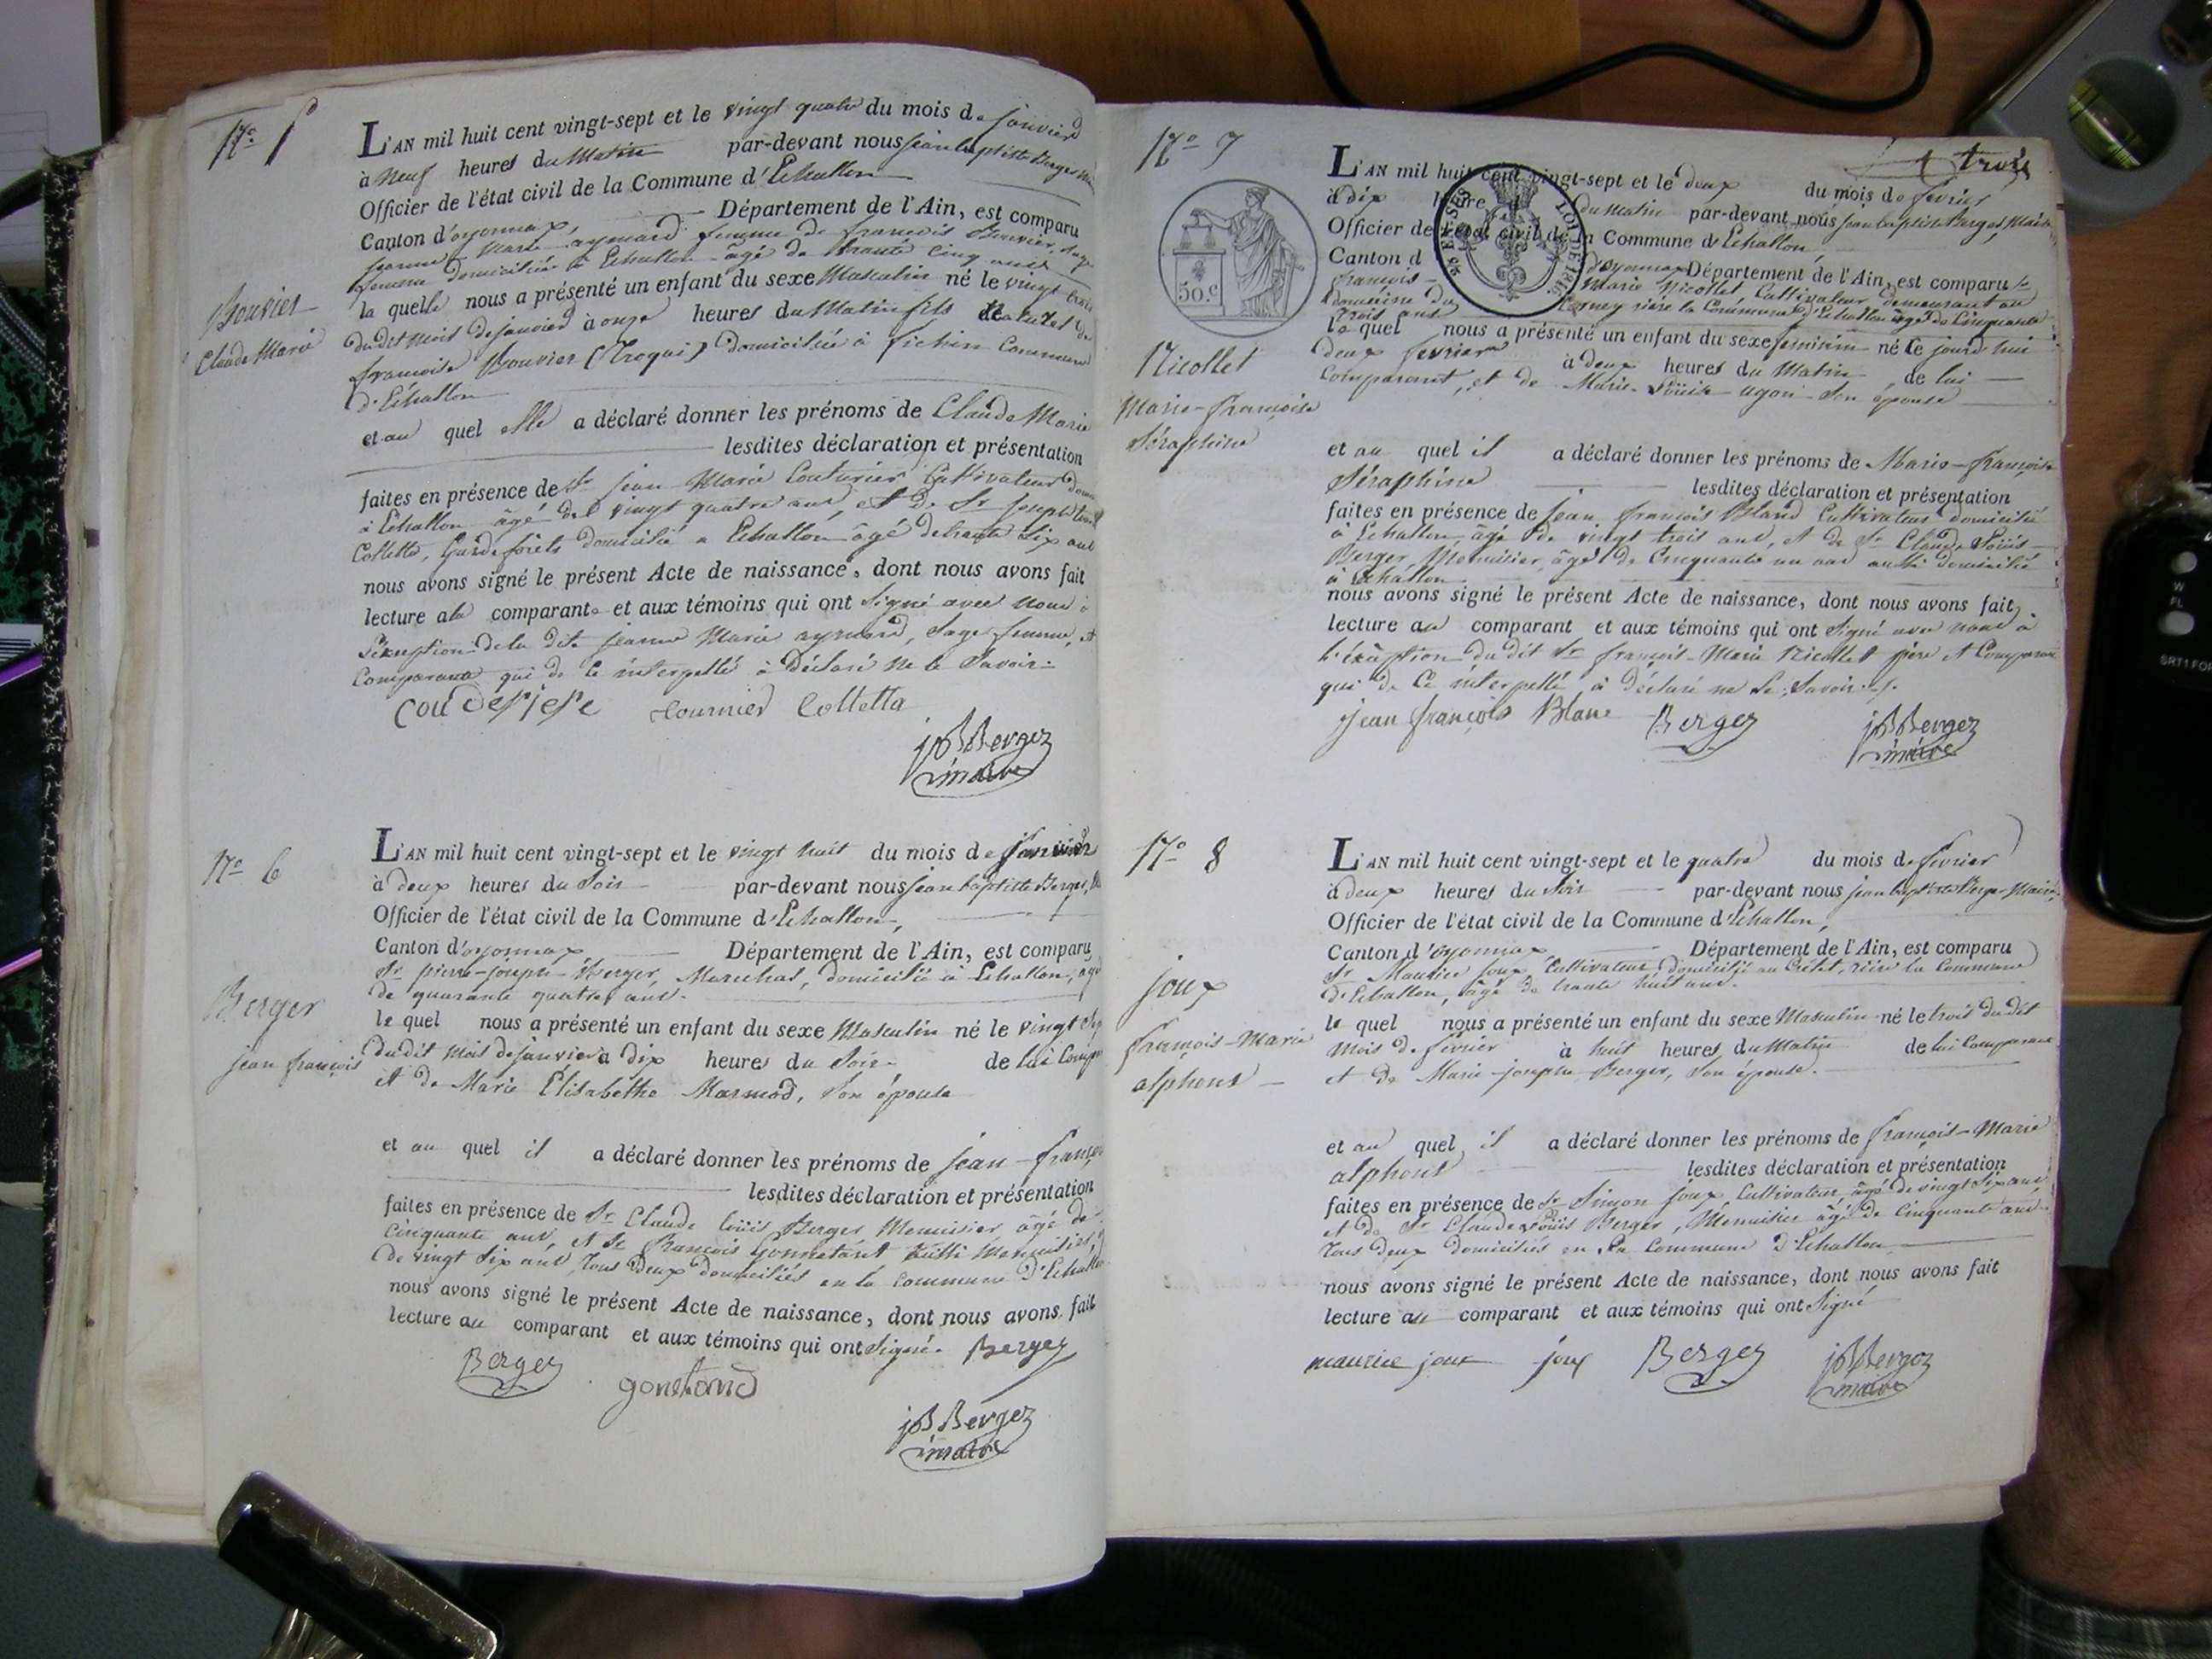 N.o 5
Bouvier
Claude Marie
L'AN mil huit cent vingt-sept et le vingt quatre du mois de janvier
à neuf heures du Matin par-devant nous jean baptiste Berger
Officier de l'état civil de la Commune d'Echallon
Canton d'oyonnax, Département de l'Ain, est comparu
jeanne Marie aymard femme de francois Bouvier, sage
femme domiciliée à Echallon âgé de trante cinq ans
la quelle nous a présenté un enfant du sexe Masculin né le vingt trois
du dit mois de janvier à onze heures du Matin fils naturel de
francoise Bouvier domiciliée à fichin Commune
d'Echallon
et au quel elle a déclaré donner les prénoms de Claude Marie
lesdites déclaration et présentation
faites en présence de Sr jean Marie Cultivateur
à Echallon âgé de vingt quatre ans, et de Sr joseph
Colletta, Garde forêts domicilié a Echallon âgé de trante Six ans
nous avons signé le présent Acte de naissance, dont nous avons fait
lecture à la comparante et aux témoins qui ont Signé avec nous à
l'exception de la dite jeanne Marie aymard, Sage femme, et
Comparante qui de ce interpellé à déclaré ne le Savoir.
Colletta
jB Berger
maire
N.o 6
Berger
jean françois
L'AN mil huit cent vingt-sept et le vingt huit du mois de janvier
à deux heures du Soir par-devant nous jean baptiste Berger,
Officier de l'état civil de la Commune d'Echallon,
Canton d'oyonnax Département de l'Ain, est comparu
Sr pierre-joseph Berger, Marechal, domicilié à Echallon, agé
de quarante quatre ans.
le quel nous a présenté un enfant du sexe Masculin né le vingt
du dit mois de janvier à dix heures du Soir de lui
et de Marie Élisabéthe Marmod, Son épouse
et au quel il a déclaré donner les prénoms de jean-françois
lesdites déclaration et présentation
faites en présence de Sr Claude Loüis Berger Menuisier âgé de
Cinquante ans, et de François Gonnetant aussi Menuisier,
de vingt Six ans, tous deux domiciliés en la commune d'Echallon
nous avons signé le présent Acte de naissance, dont nous avons fait
lecture au comparant et aux témoins qui ont Signé. Berger
Berger
jB Berger
maire
trois
N.o 7
50.c
LOI DE 1816
Nicollet
Marie-françoise
Séraphine
L'AN mil huit cent vingt-sept et le deux du mois de fevrier
à dix heures du Matin par-devant nous jean baptiste Berger, Maire
Officier de l'état civil de la Commune d'Echallon,
Canton d'oyonnax Département de l'Ain, est comparu
françois Marie Nicollet, Cultivateur demeurant au
rière la Commune d'Echallon âgé de Cinquante
trois ans
le quel nous a présenté un enfant du sexe feminin né le jourd'hui
deux fevrier à deux heures du Matin de lui
Comparant, et de Marie-Loüise ugon Son épouse
et au quel il a déclaré donner les prénoms de Marie-françoise
Séraphine lesdites déclaration et présentation
faites en présence de jean françois Blanc Cultivateur domicilié
à Echallon âgé de vingt trois ans, et de Sr Claude Loüis
Berger, Menuisier, âgé de Cinquante un ans aussi domicilié
à Echallon
nous avons signé le présent Acte de naissance, dont nous avons fait
lecture au comparant et aux témoins qui ont Signé avec nous à
l'exception du dit Sr françois-Marie Nicollet père et Comparant
qui de ce interpellé à déclaré ne le Savoir.
jean françois Blanc Berger
jB Berger
maire
N.o 8
joux
françois-Marie
alphonse
L'AN mil huit cent vingt-sept et le quatre du mois de fevrier
à deux heures du Soir par-devant nous jean baptiste Berger Maire,
Officier de l'état civil de la Commune d'Echallon,
Canton d'oyonnax Département de l'Ain, est comparu
Sr Maurice joux, Cultivateur domicilié au Crétet, rière la Commune
d'Echallon, âgé de trante huit ans.
le quel nous a présenté un enfant du sexe Masculin né le trois du dit
mois de fevrier à huit heures du Matin de lui Comparant
et de Marie-josephe Berger, Son épouse.
et au quel il a déclaré donner les prénoms de françois-Marie
alphonse lesdites déclaration et présentation
faites en présence de Sr Simon joux, Cultivateur, âgé de vingt Six ans
et de Sr Claude Loüis Berger, Menuisier âgé de Cinquante ans
tous deux domiciliés en la Commune d'Echallon
nous avons signé le présent Acte de naissance, dont nous avons fait
lecture au comparant et aux témoins qui ont Signé
maurice joux joux Berger
jB Berger
maire